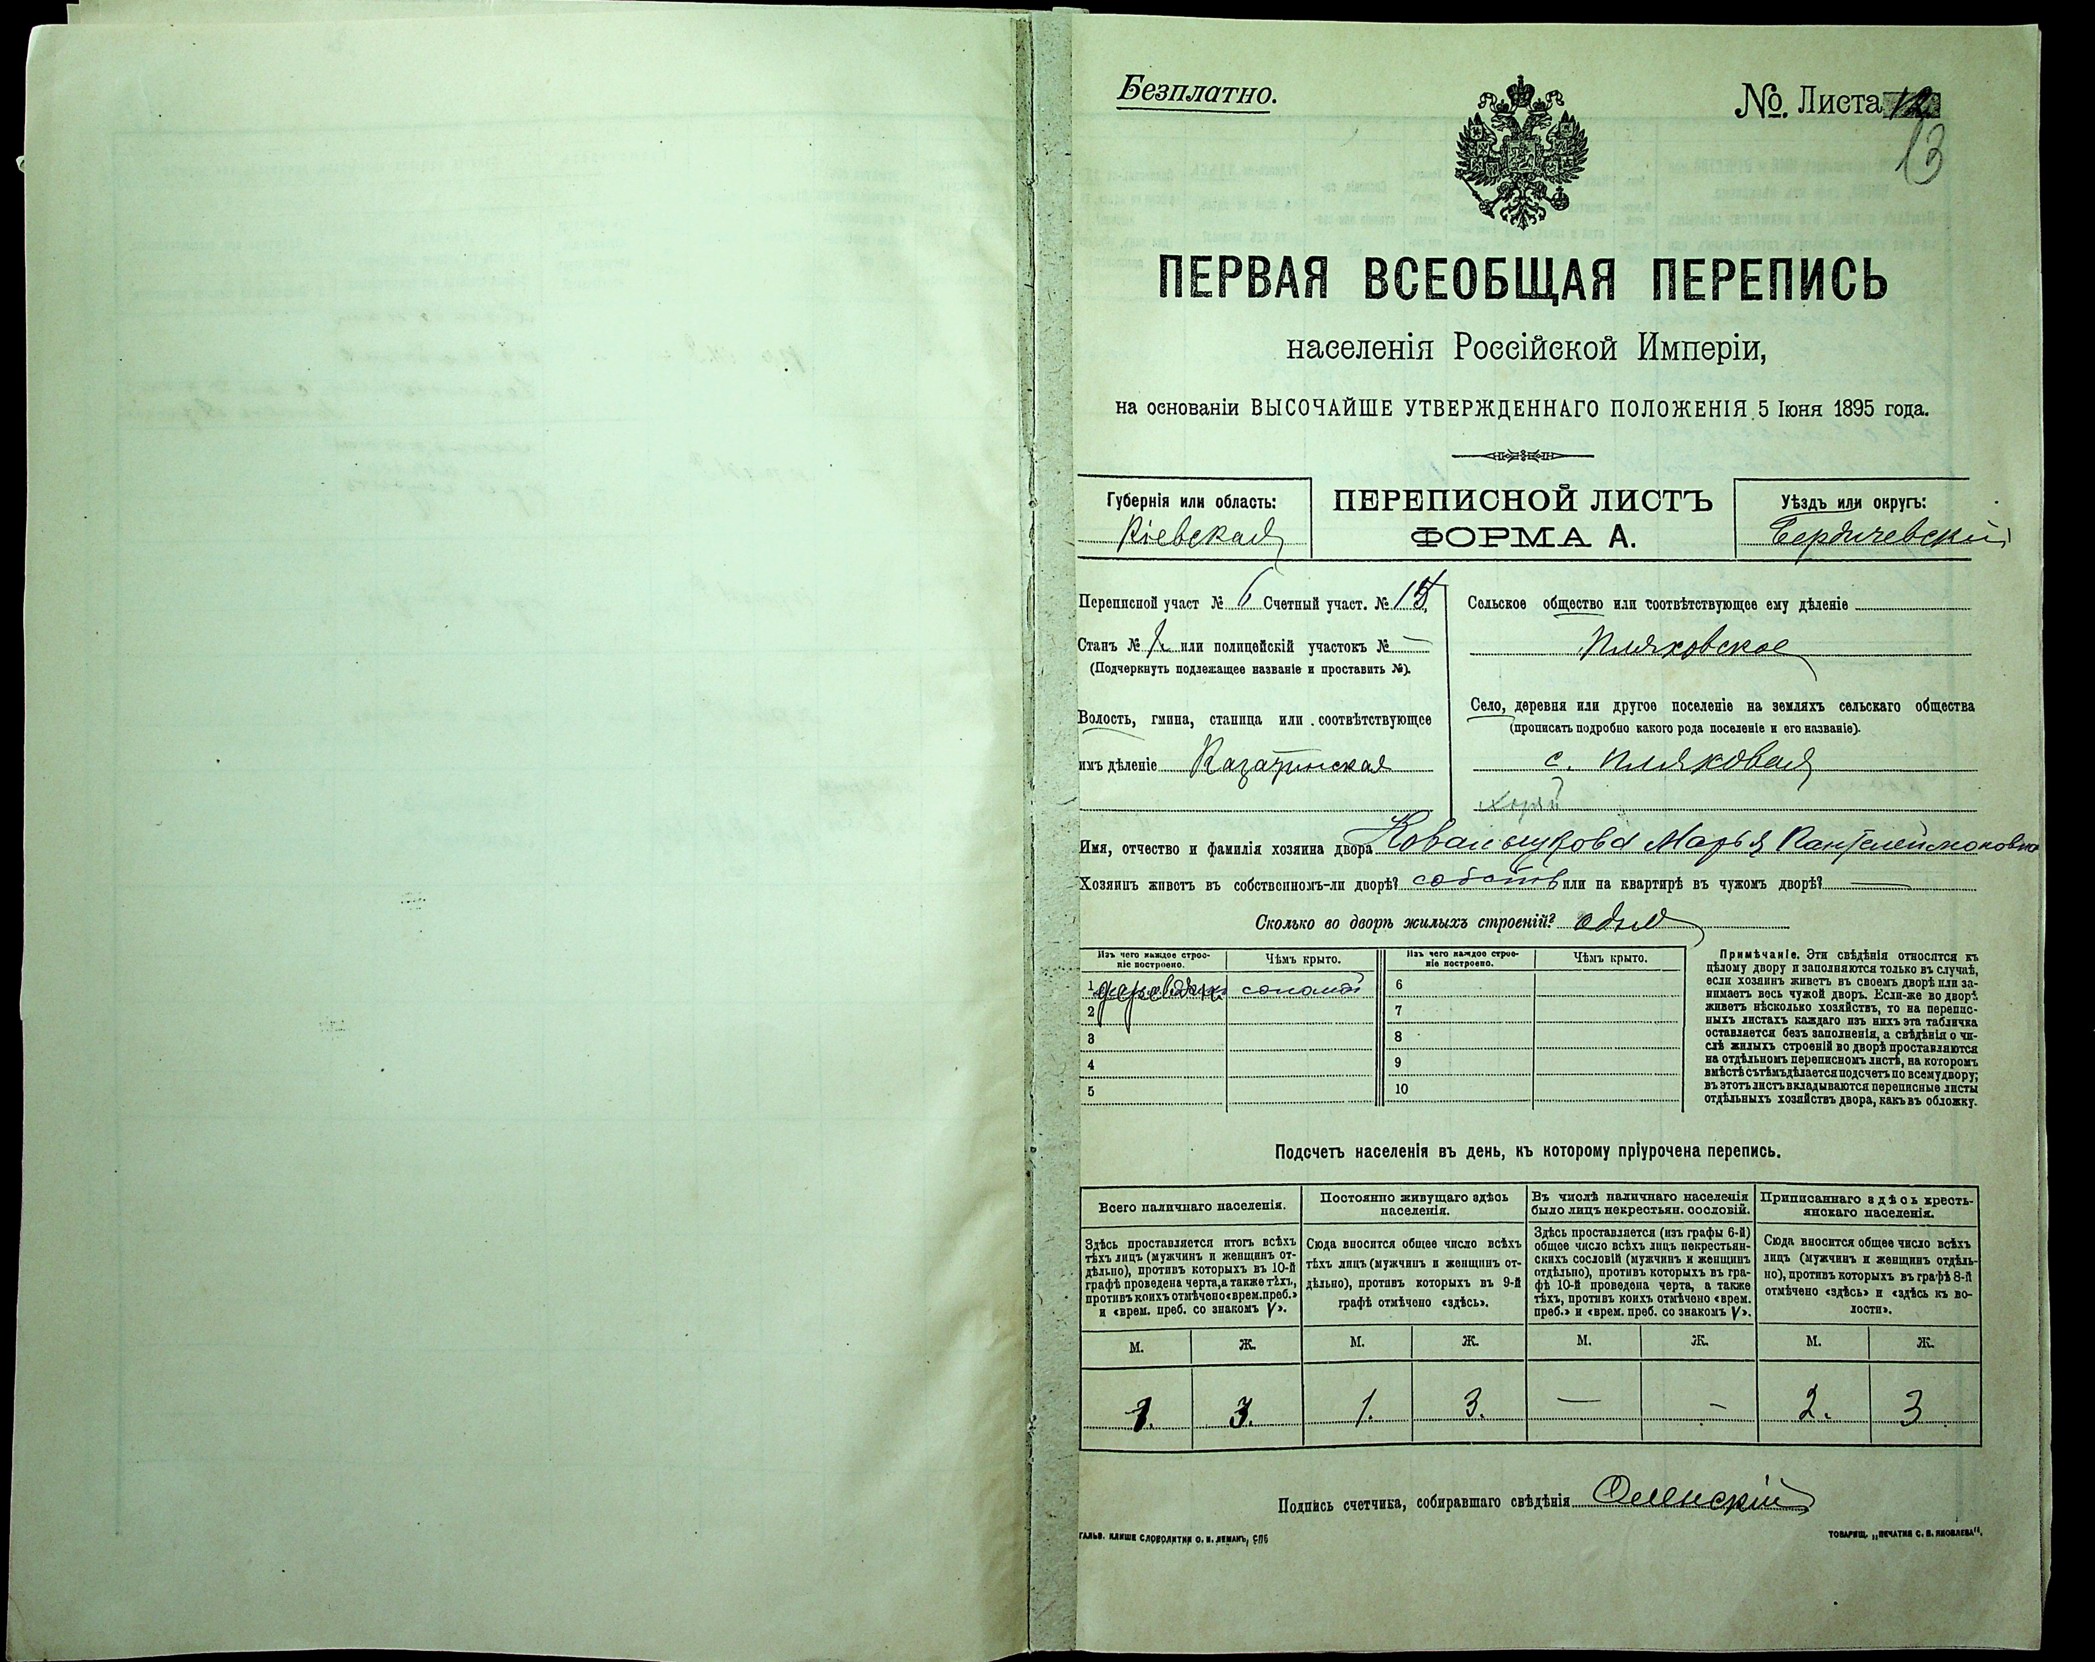 Безплатно.
№. Листа 12
13
ПЕРВАЯ ВСЕОБЩАЯ ПЕРЕПИСЬ
населенія Россійской Имперіи,
на основаніи ВЫСОЧАЙШЕ УТВЕРЖДЕННАГО ПОЛОЖЕНІЯ 5 Іюня 1895 года.
Губернія или область:
Кіевская
ПЕРЕПИСНОЙ ЛИСТЪ
ФОРМА А.
Уѣздъ или округъ:
Бердичевскій
Переписной участ № 6 Счетный участ. №
Станъ № или полицейскій участокъ № —
(Подчеркнуть подлежащее названіе и проставить №).
Волость, гмина, станица или соотвѣтствующее
имъ дѣленіе Казатинская
Сельское общество или соотвѣтствующее ему дѣленіе
Пляховское
Село, деревня или другое поселеніе на земляхъ сельскаго общества
(прописать подробно какого рода поселеніе и его названіе).
с. Пляховая
Имя, отчество и фамилія хозяина двора Ковальчукова Марья Пантелеймоновна
Хозяинъ живетъ въ собственномъ-ли дворѣ? собств или на квартирѣ въ чужомъ дворѣ? —
Сколько во дворѣ жилыхъ строеній? одна
Изъ чего каждое строеніе построено.
Чѣмъ крыто.
Изъ чего каждое строеніе построено.
Чѣмъ крыто.
1 деревян. соломой 6
2 7
3 8
4 9
5 10
Примѣчаніе. Эти свѣдѣнія относятся къ
цѣлому двору и заполняются только въ случаѣ,
если хозяинъ живетъ въ своемъ дворѣ или за-
нимаетъ весь чужой дворъ. Если-же во дворѣ
живетъ нѣсколько хозяйствъ, то на перепис-
ныхъ листахъ каждаго изъ нихъ эта табличка
оставляется безъ заполненія, а свѣдѣнія о чи-
слѣ жилыхъ строеній во дворѣ проставляются
на отдѣльномъ переписномъ листѣ, на которомъ
вмѣстѣ съ тѣмъ дѣлается подсчетъ по всему двору;
въ этотъ листъ вкладываются переписные листы
отдѣльныхъ хозяйствъ двора, какъ въ обложку.
Подсчетъ населенія въ день, къ которому пріурочена перепись.
Всего наличнаго населенія.
Здѣсь проставляется итогъ всѣхъ
тѣхъ лицъ (мужчинъ и женщинъ от-
дѣльно), противъ которыхъ въ 10-й
графѣ проведена черта, а также тѣхъ,
противъ коихъ отмѣчено «врем. преб.»
и «врем. преб. со знакомъ V».
Постоянно живущаго здѣсь
населенія.
Сюда вносится общее число всѣхъ
тѣхъ лицъ (мужчинъ и женщинъ от-
дѣльно), противъ которыхъ въ 9-й
графѣ отмѣчено «здѣсь».
Въ числѣ наличнаго населенія
было лицъ некрестьян. сословій.
Здѣсь проставляется (изъ графы 6-й)
общее число всѣхъ лицъ некрестьян-
скихъ сословій (мужчинъ и женщинъ
отдѣльно), противъ которыхъ въ гра-
фѣ 10-й проведена черта, а также
тѣхъ, противъ коихъ отмѣчено «врем.
преб.» и «врем. преб. со знакомъ V».
Приписаннаго здѣсь кресть-
янскаго населенія.
Сюда вносится общее число всѣхъ
лицъ (мужчинъ и женщинъ отдѣль-
но), противъ которыхъ въ графѣ 8-й
отмѣчено «здѣсь» и «здѣсь къ во-
лости».
М. Ж. М. Ж. М. Ж. М. Ж.
1. 3. 1. 3. — — 2. 3
Подпись счетчика, собиравшаго свѣдѣнія
ГАЛЬВ. КЛИШЕ СЛОВОЛИТНИ О. И. ЛЕМАНЪ, СПБ
ТОВАРИЩ. „ПЕЧАТНЯ С. П. ЯКОВЛЕВА".